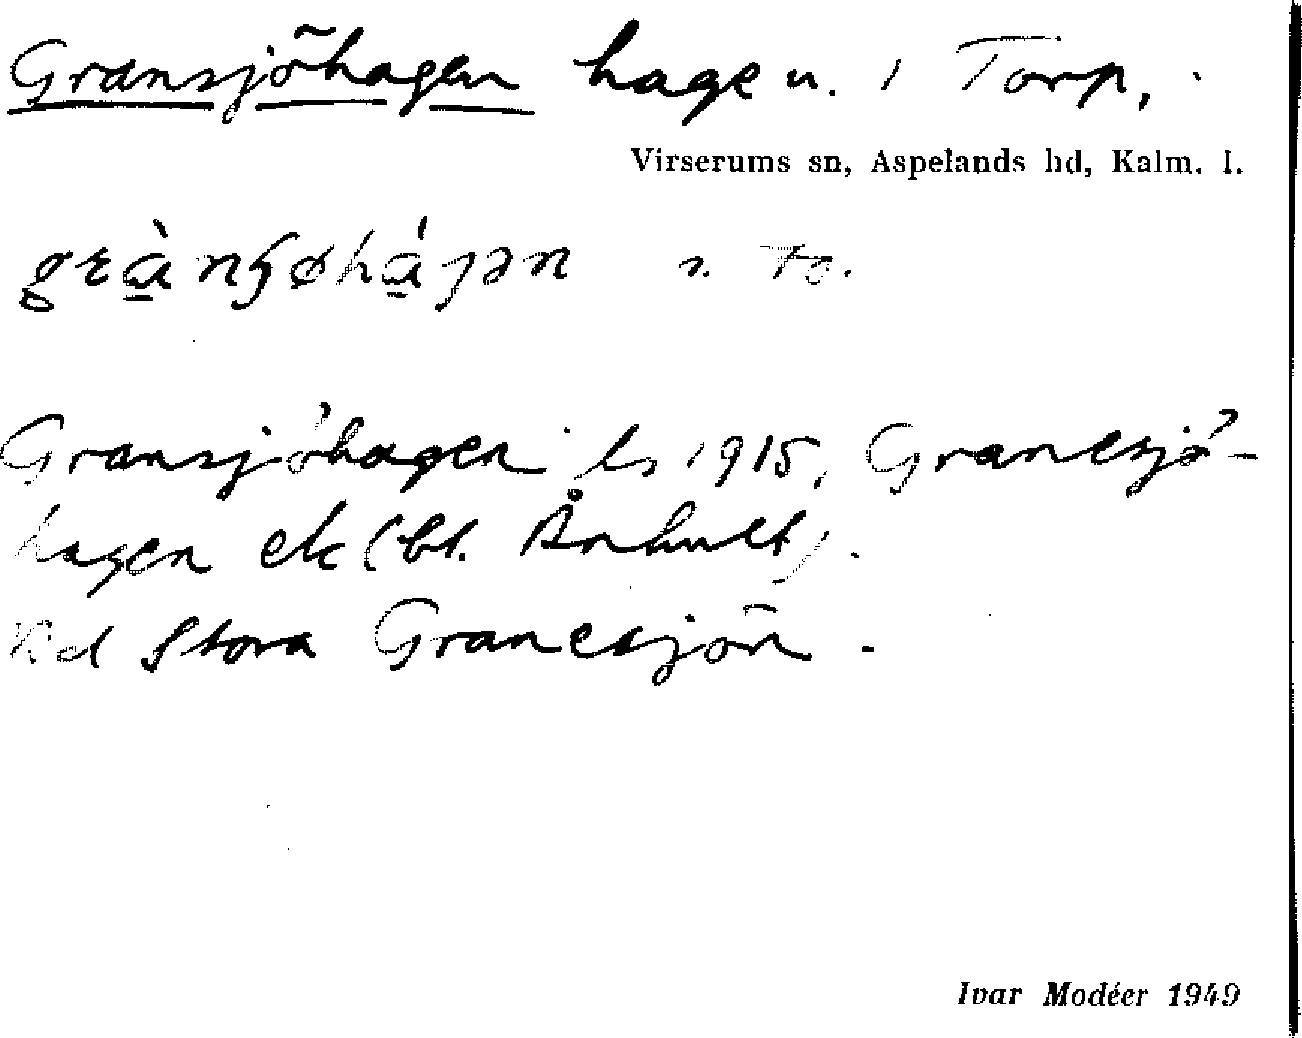 Gransjöhagen hage n. i Torp,
Virserums sn, Aspelands hd, Kalm. l.
Gransjöhagen ls 1915, Granesjö-
hagen ek (bl. Århult).
Vid Stora Granesjön.
Ivar Modéer 1949